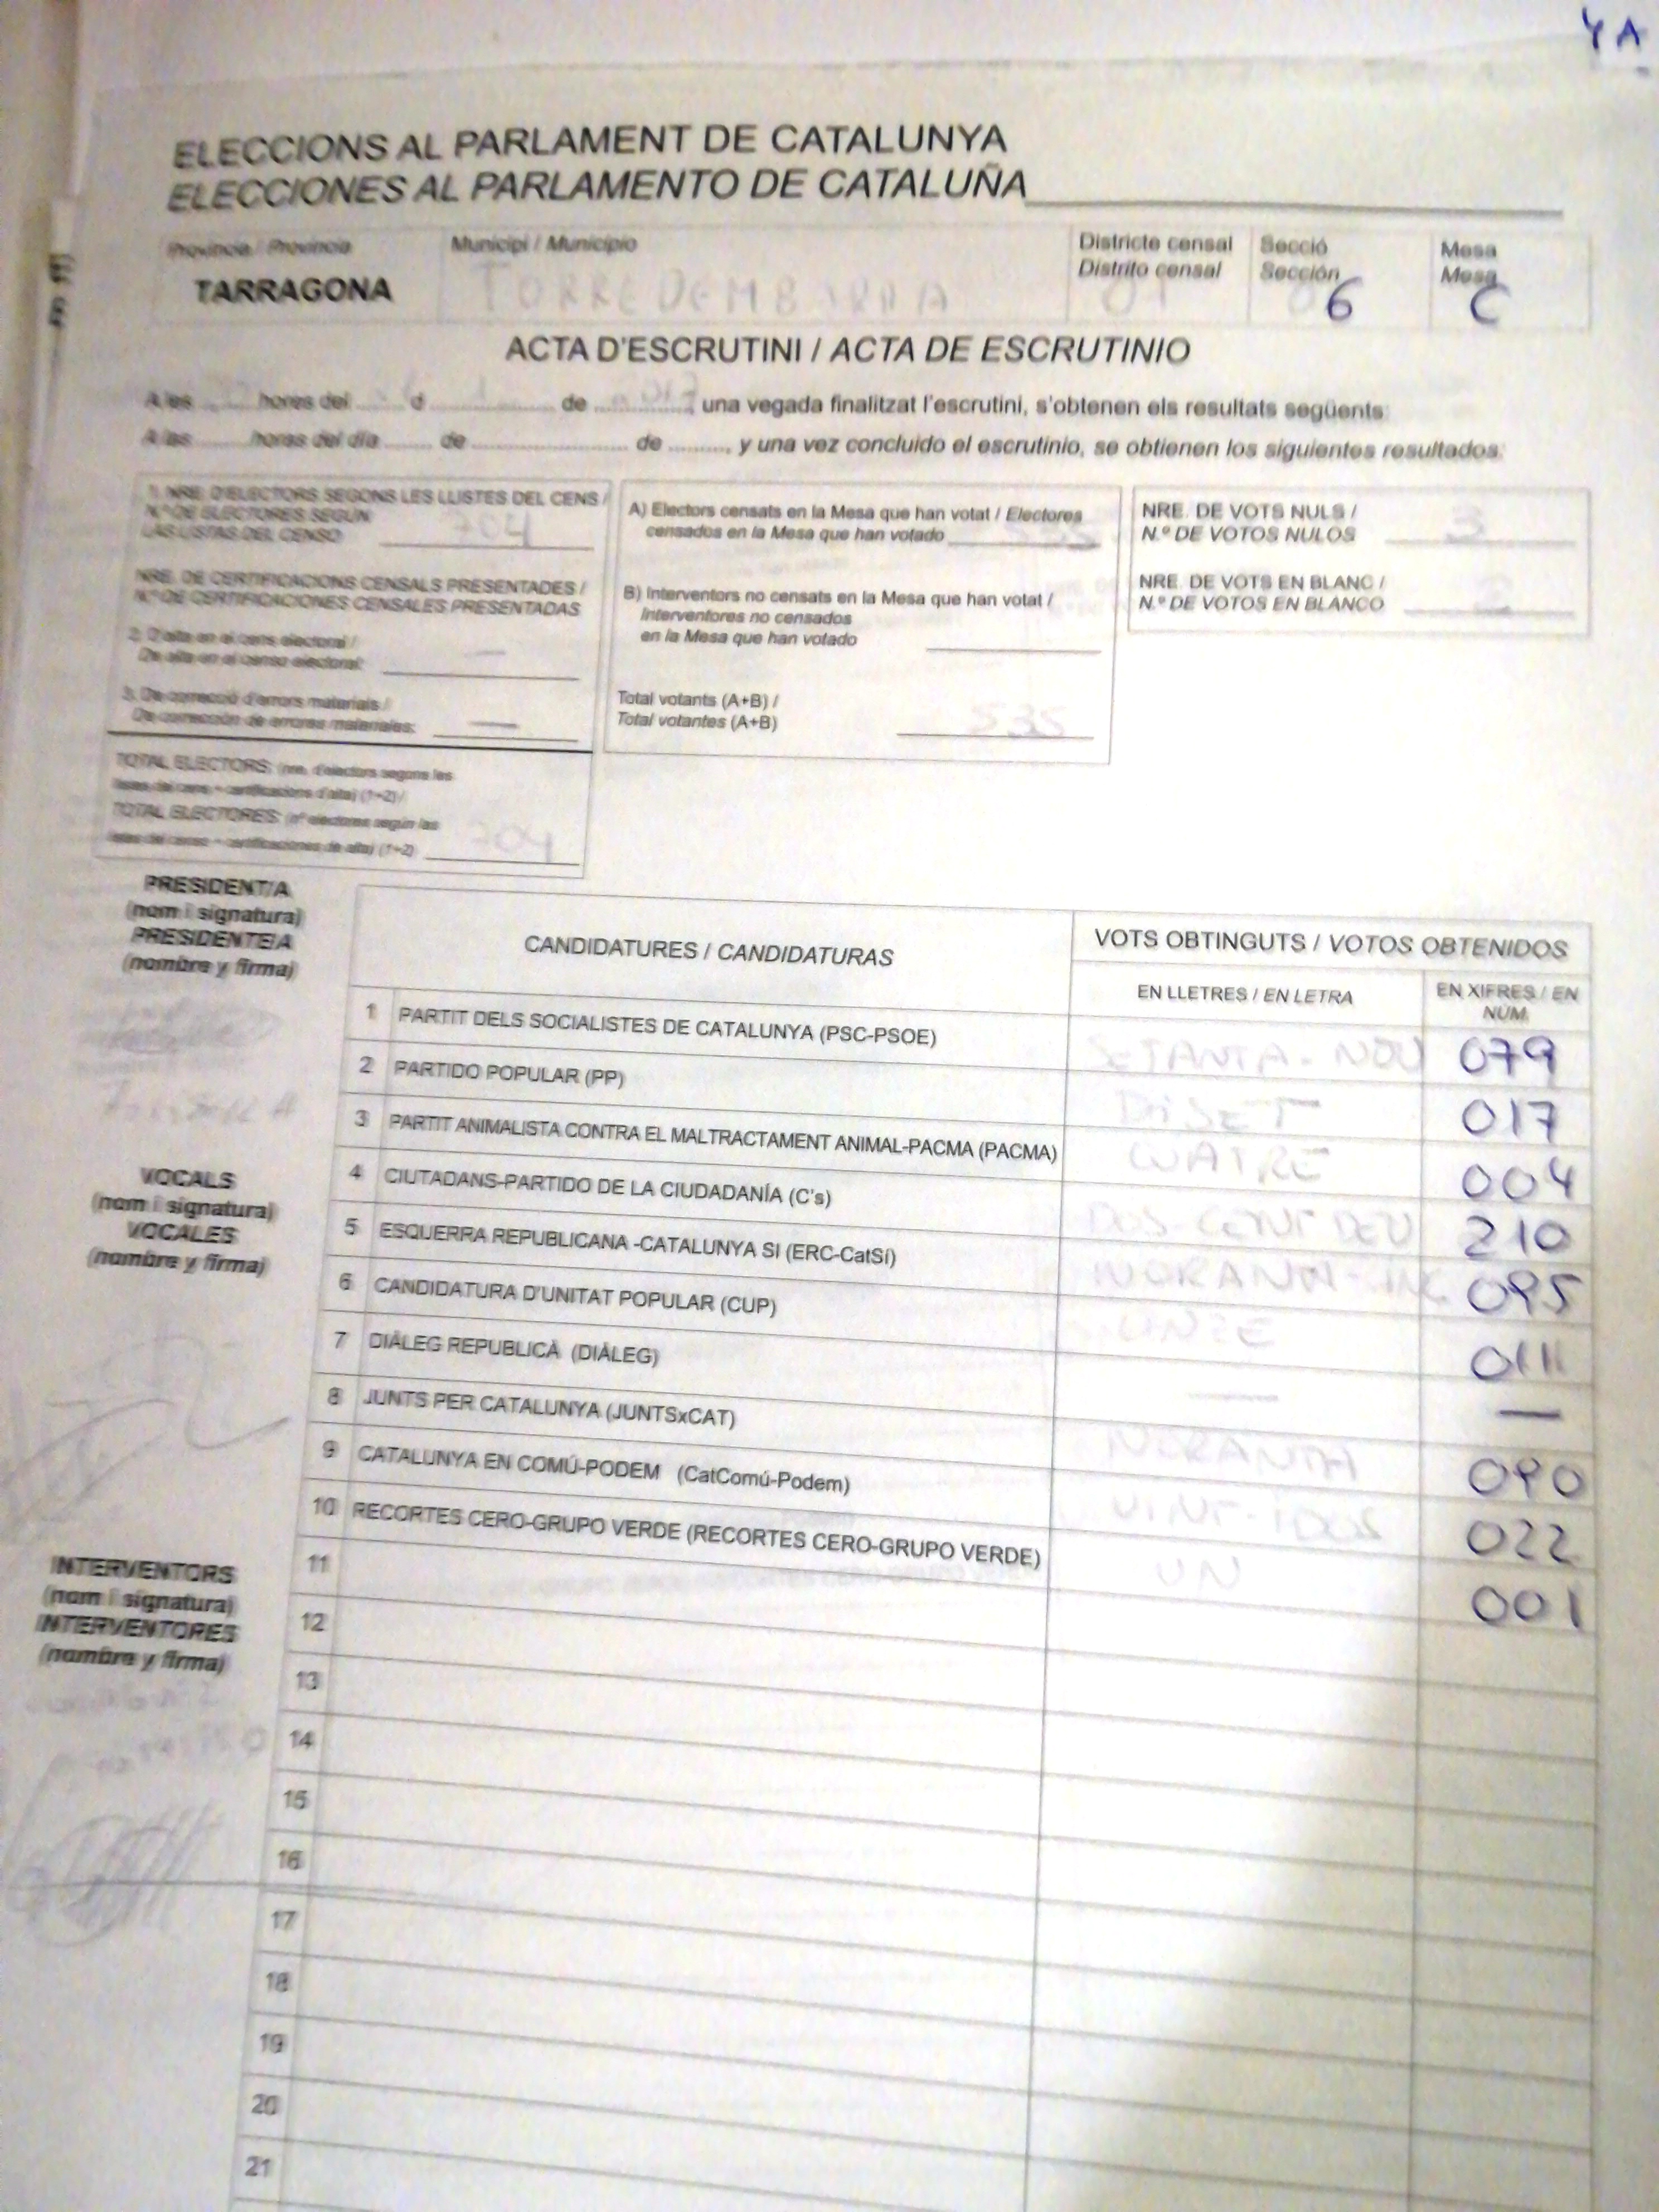 YA
ELECCIONS AL PARLAMENT DE CATALUNYA
ELECCIONES AL PARLAMENTO DE CATALUÑA
Provincia / Provincia Municipi / Municipio Districte censal Secció Mesa
Distrito censal Sección Mesa
TARRAGONA TORREDEMBARRA 01 6 C
ACTA D'ESCRUTINI / ACTA DE ESCRUTINIO
A les hores del d de 2017, una vegada finalitzat l'escrutini, s'obtenen els resultats següents:
A las horas del día de de , y una vez concluido el escrutinio, se obtienen los siguientes resultados:
1. NRE. D'ELECTORS SEGONS LES LLISTES DEL CENS /
N.º DE ELECTORES SEGÚN
LAS LISTAS DEL CENSO 704
NRE. DE CERTIFICACIONS CENSALS PRESENTADES /
N.º DE CERTIFICACIONES CENSALES PRESENTADAS
2. D'alta en el cens electoral /
De alta en el censo electoral: —
3. De correcció d'errors materials /
De corrección de errores materiales: —
TOTAL ELECTORS: (nre. d'electors segons les
llistes del cens + certificacions d'alta) (1+2) /
TOTAL ELECTORES: (nº electores según las
listas del censo + certificaciones de alta) (1+2) 704
A) Electors censats en la Mesa que han votat / Electores
censados en la Mesa que han votado
B) Interventors no censats en la Mesa que han votat /
Interventores no censados
en la Mesa que han votado
Total votants (A+B) /
Total votantes (A+B) 535
NRE. DE VOTS NULS /
N.º DE VOTOS NULOS 3
NRE. DE VOTS EN BLANC /
N.º DE VOTOS EN BLANCO
PRESIDENT/A
(nom i signatura)
PRESIDENTE/A
(nombre y firma)
VOCALS
(nom i signatura)
VOCALES
(nombre y firma)
INTERVENTORS
(nom i signatura)
INTERVENTORES
(nombre y firma)
CANDIDATURES / CANDIDATURAS VOTS OBTINGUTS / VOTOS OBTENIDOS
EN LLETRES / EN LETRA EN XIFRES / EN NÚM.
1 PARTIT DELS SOCIALISTES DE CATALUNYA (PSC-PSOE) SETANTA-NOU 079
2 PARTIDO POPULAR (PP) DISET 017
3 PARTIT ANIMALISTA CONTRA EL MALTRACTAMENT ANIMAL-PACMA (PACMA) CUATRE 004
4 CIUTADANS-PARTIDO DE LA CIUDADANÍA (C's) DOS-CENT DEU 210
5 ESQUERRA REPUBLICANA -CATALUNYA SI (ERC-CatSí) 095
6 CANDIDATURA D'UNITAT POPULAR (CUP) UNZE 011
7 DIÀLEG REPUBLICÀ (DIÀLEG) — —
8 JUNTS PER CATALUNYA (JUNTSxCAT) NORANTA 090
9 CATALUNYA EN COMÚ-PODEM (CatComú-Podem) VINT-IDOS 022
10 RECORTES CERO-GRUPO VERDE (RECORTES CERO-GRUPO VERDE) UN 001
11
12
13
14
15
16
17
18
19
20
21